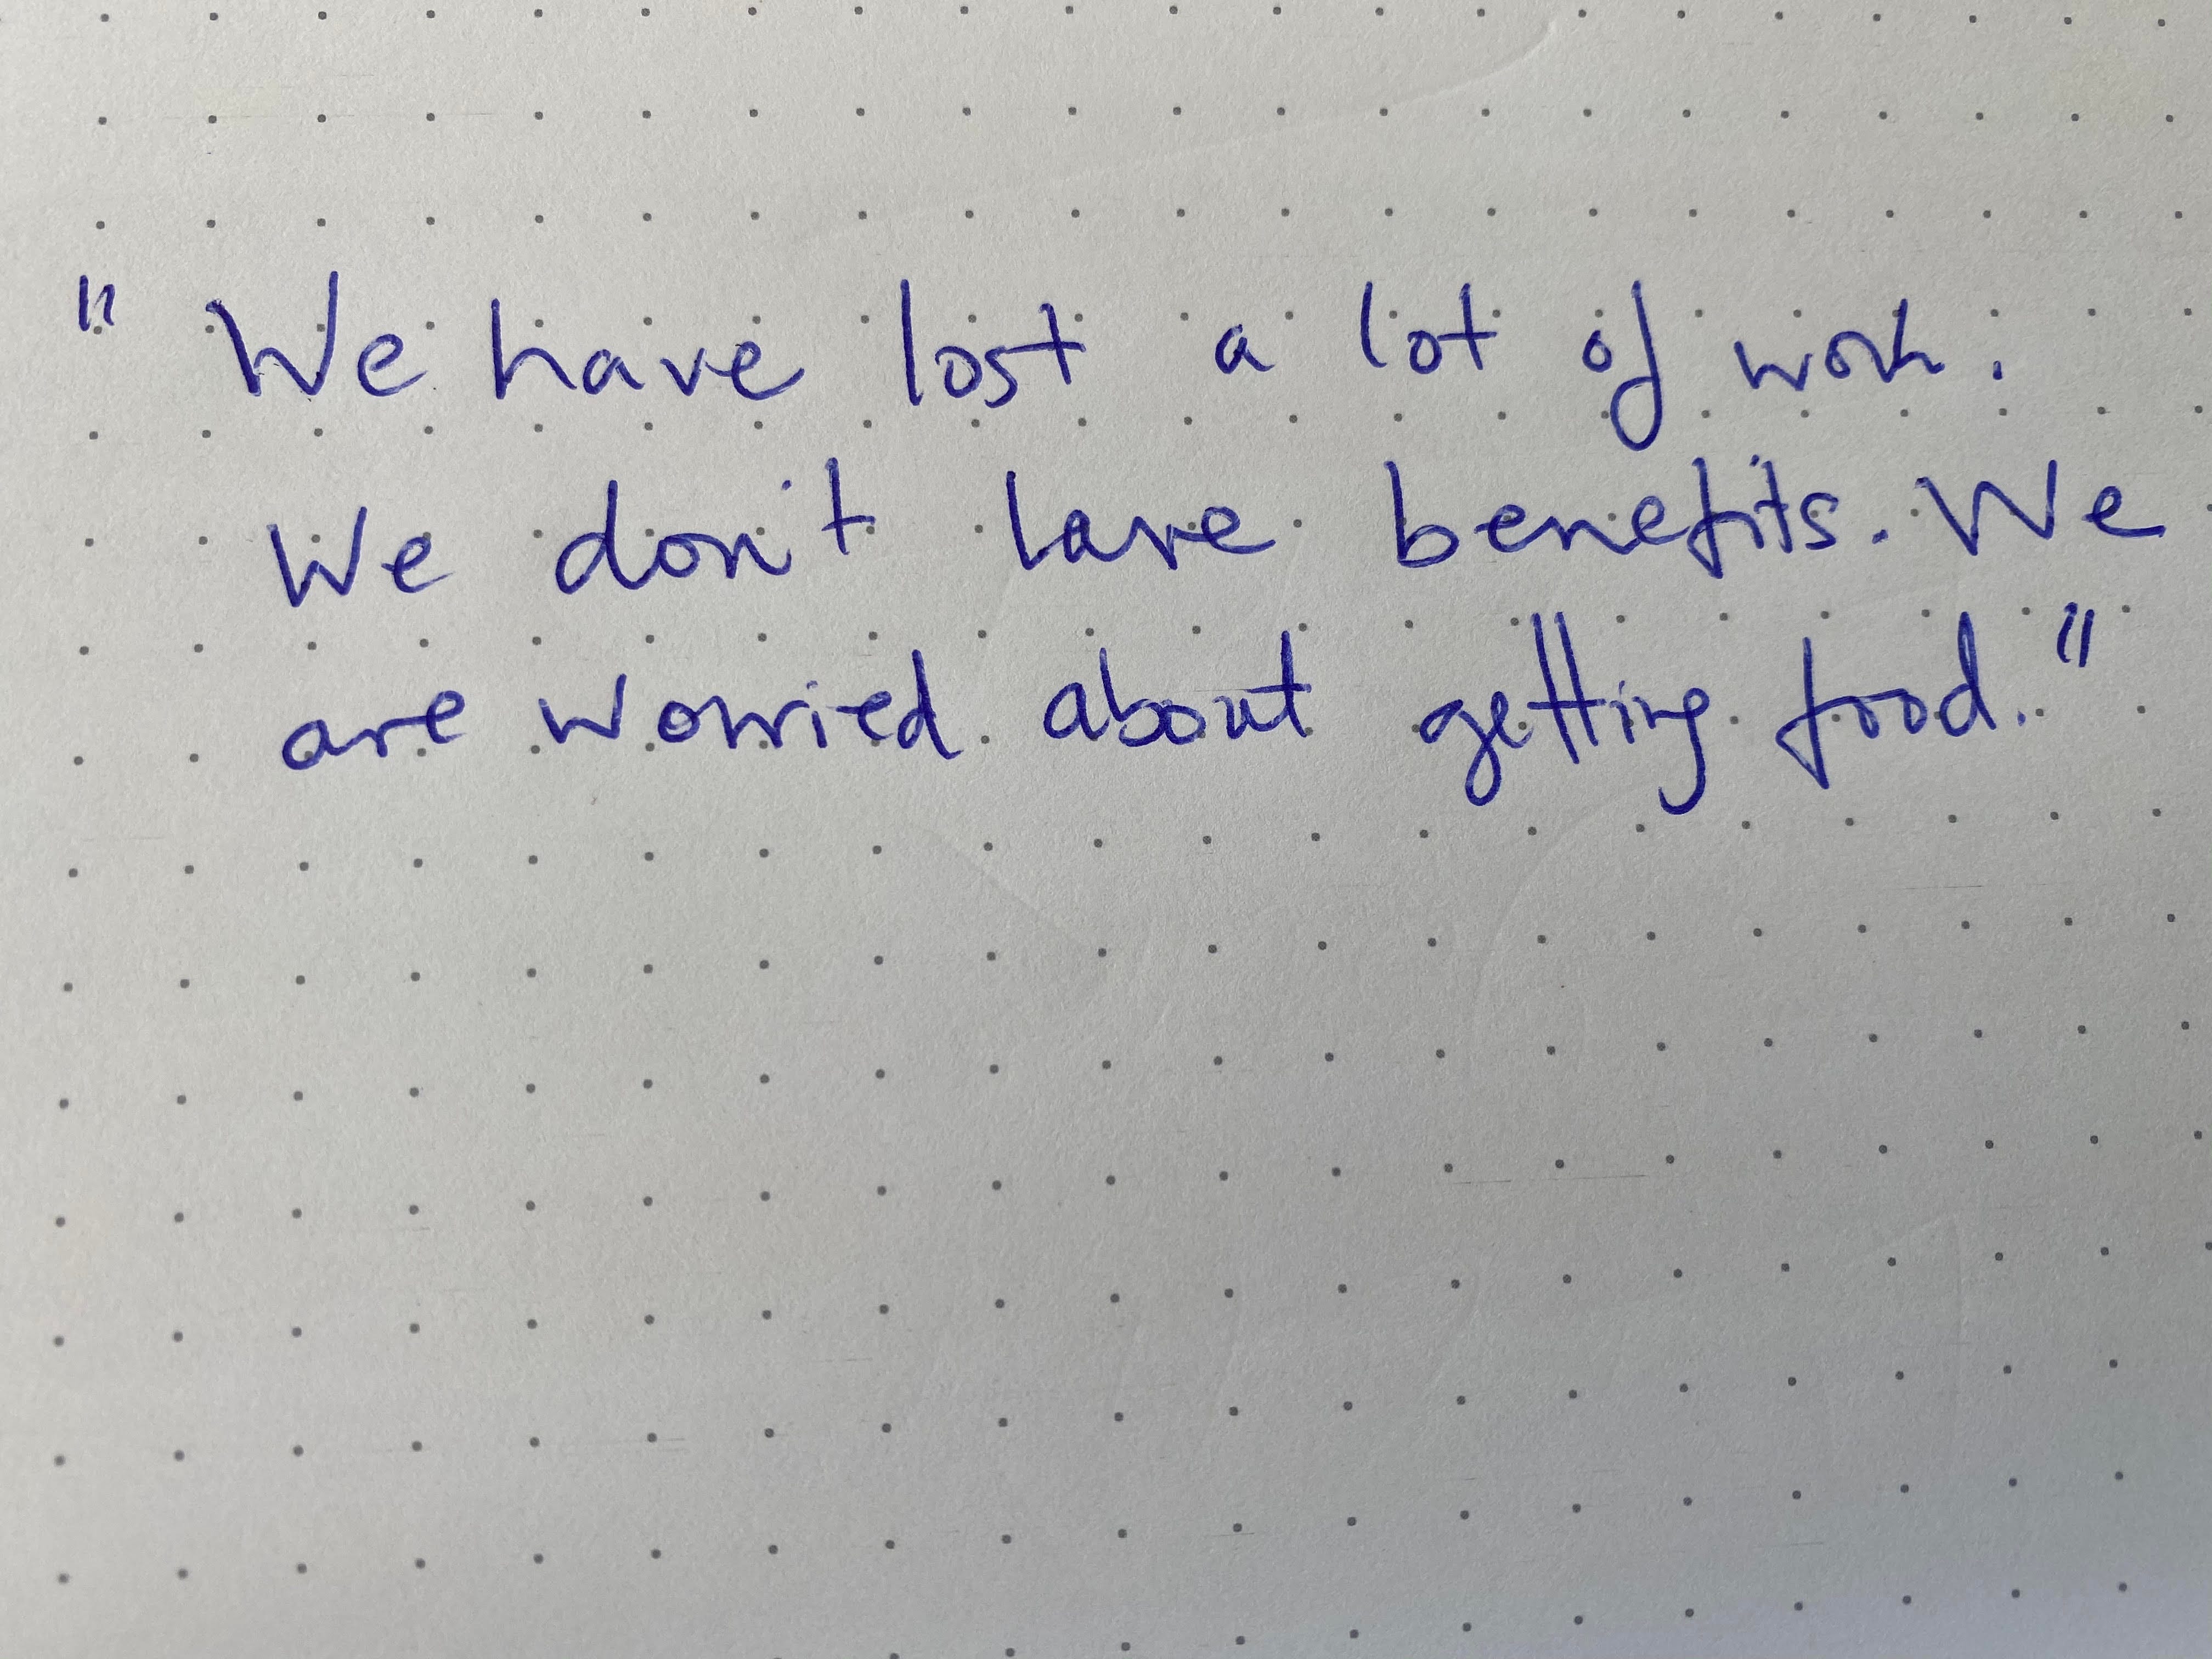 "We have lost a lot of work.
We don't have benefits. We
are worried about getting food."